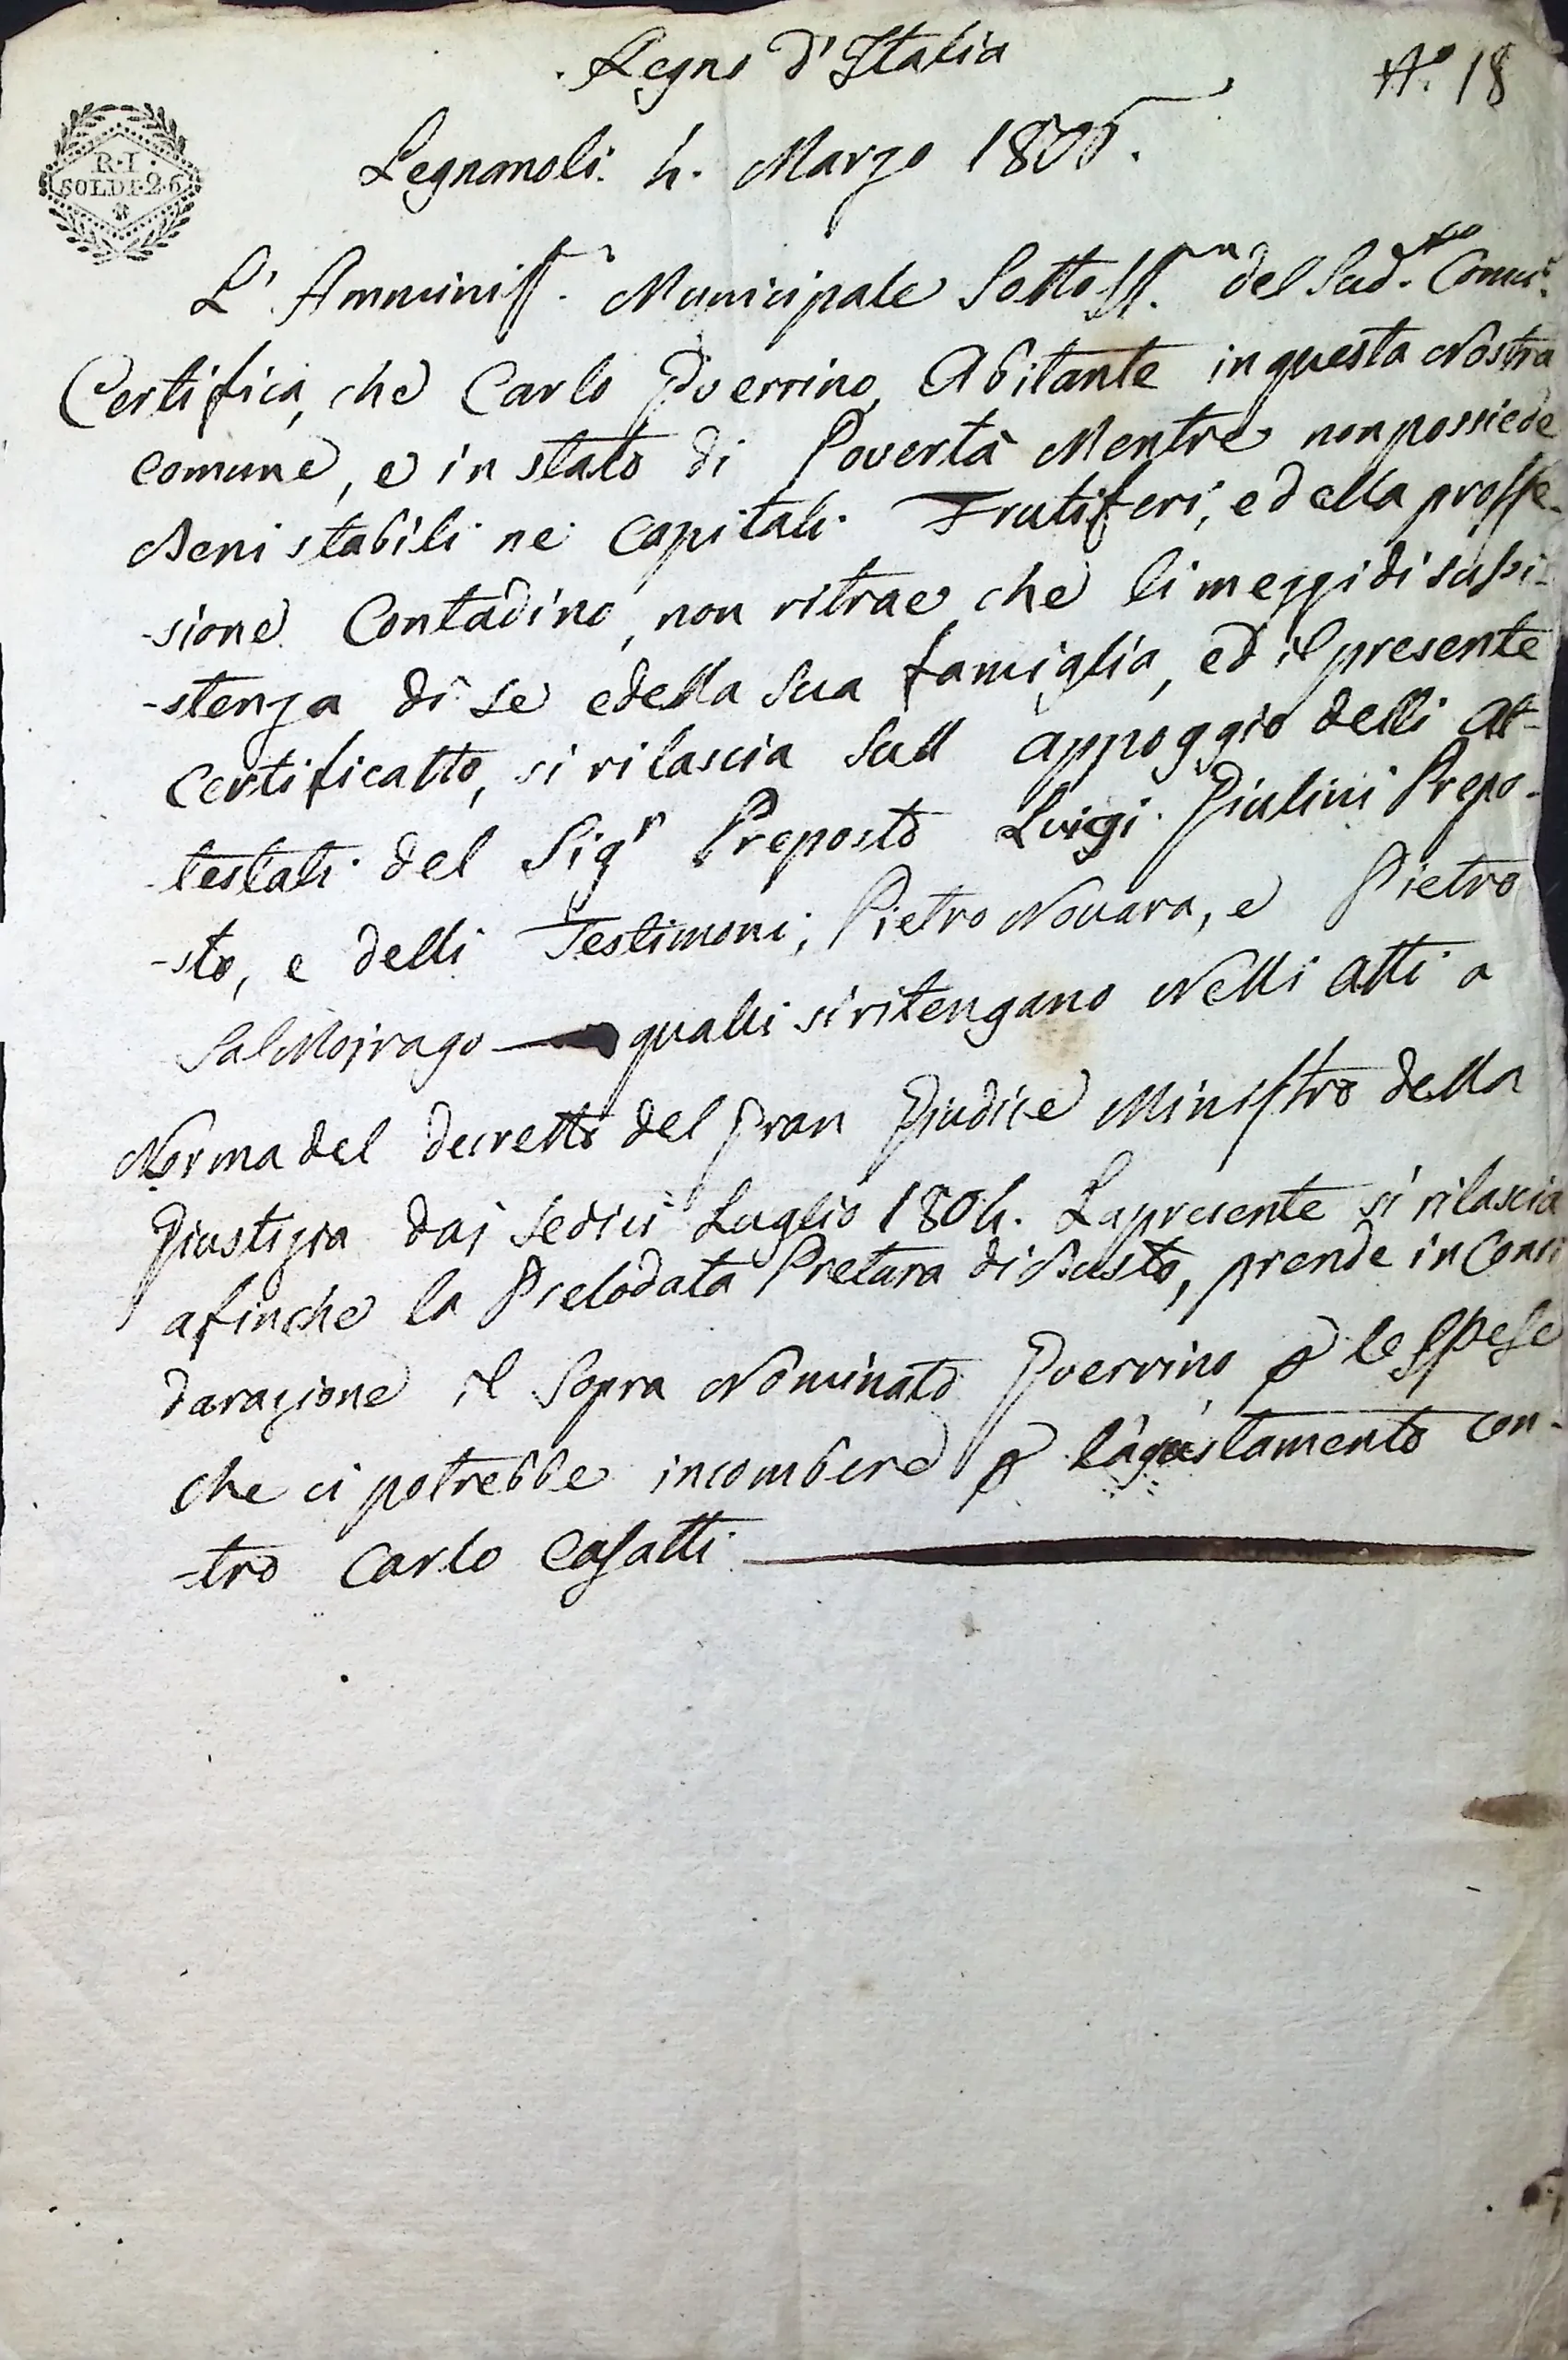 Regno d'Italia
N.º 18
R·I·
SOLDI·26
Legnanoli. 4. Marzo 1806.
L'Amminist.e Municipale Sottoss.a del Sud.to Comu.e
Certifica, che Carlo Guerrino, Abitante in questa Nostra
comune, e in stato di Povertà Mentre non possiede
Beni stabili ne Capitali Frutiferi, e della proffe-
-sione Contadino, non ritrae che li mezzi di sussi-
-stenza di se e della Sua famiglia, ed il presente
Certificatto, si rilascia Sull appoggio delli At-
-testati del Sigr Preposto Luigi Giulini Prepo-
-sto, e delli Testimoni, Pietro Novara, e Pietro
SalMojrago qualli si ritengano Nelli Atti a
Norma del decretto del Gran Giudice Ministro della
Giustizia dai Sedici Luglio 1804. La presente si rilascia
afinche la Prelodata Pretura di Busto, prende in Consi
darazione il Sopra Nominato Guerrino p le Spese
che ci potrebbe incombere p l'agustamento con-
-tro Carlo Casatti